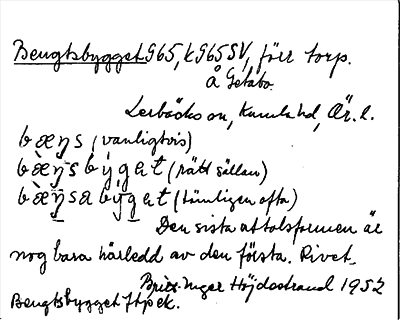 Bengtsbygget G65, k G65 SV, förr torp.
å Getabo.
Lerbäcks sn, Kumla hd, Ör. l.
bæŋs (vanligtvis)
bæŋs býgat (rätt sällan)
bæŋsa býgat (tämligen ofta)
Den sista uttalsformen är
nog bara härledd av den första. Rivet.
Britt-Inger Höjdestrand 1952
Bengtsbygget Jfp ek.